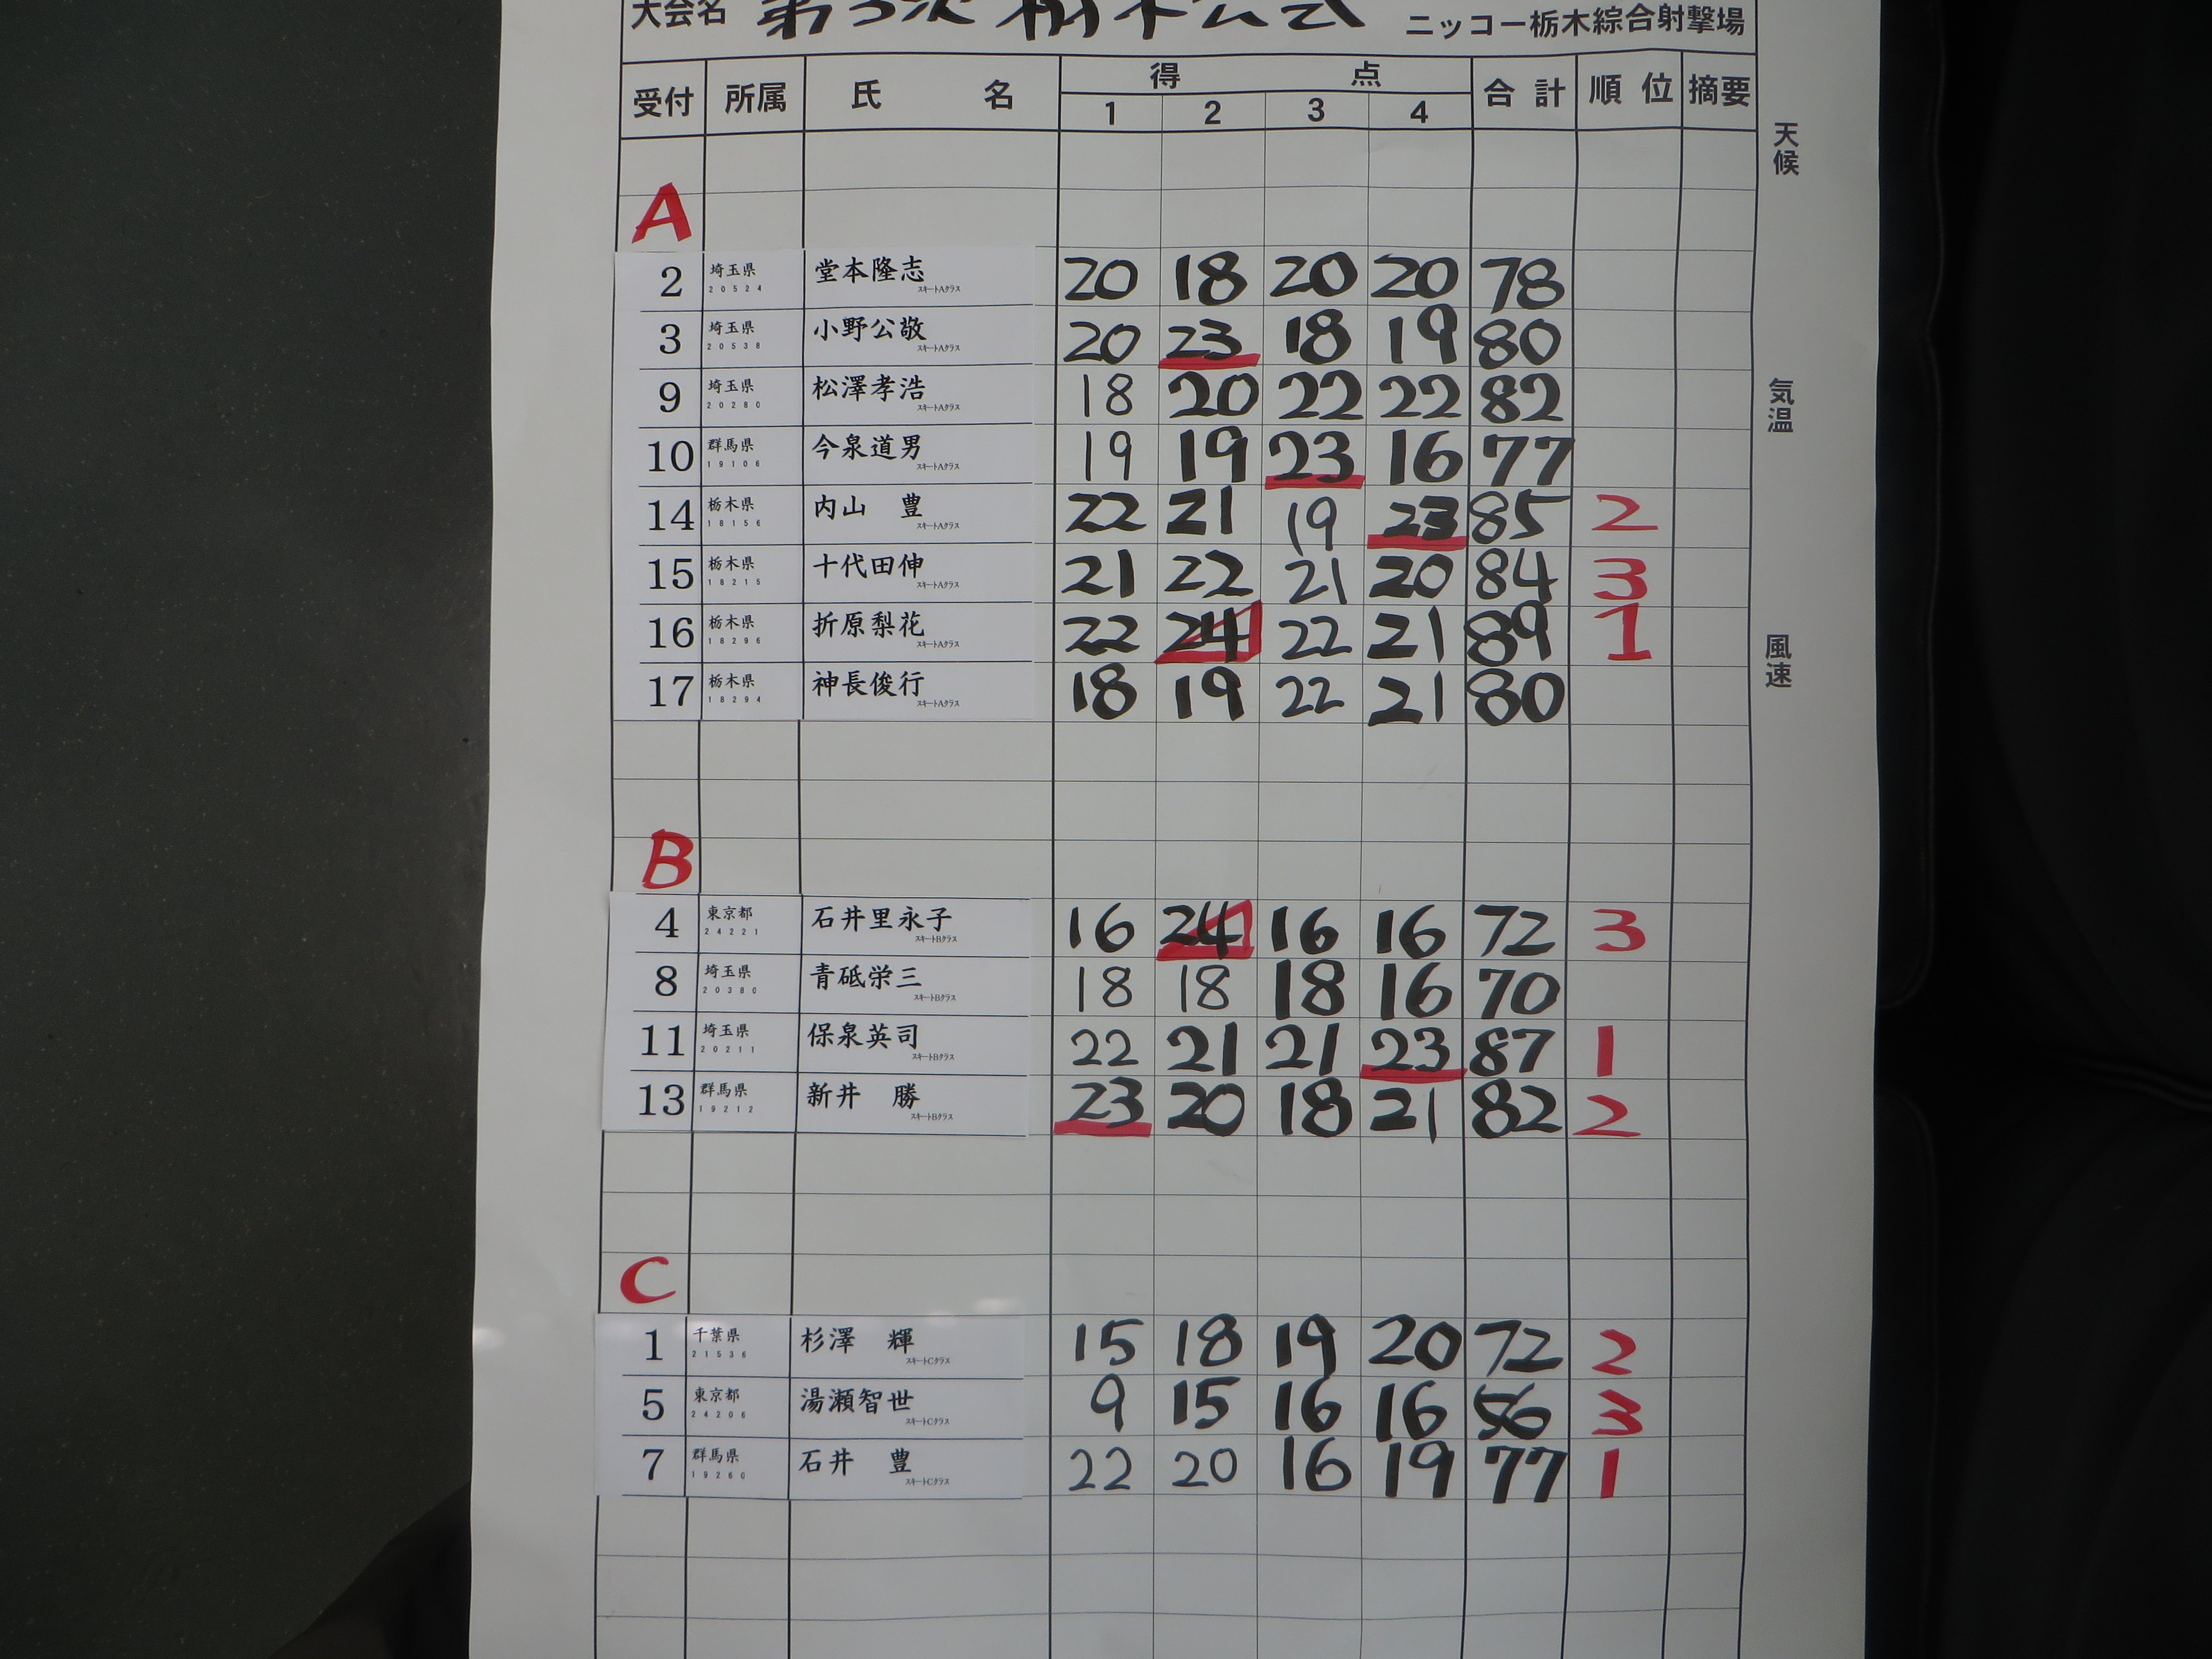 大会名 第3次 栃木公式 ニッコー栃木綜合射撃場
受付 所属 氏名 得点 合計 順位 摘要
1 2 3 4
天候
気温
風速
A
2 埼玉県 20524 堂本隆志 スキートAクラス 20 18 20 20 78
3 埼玉県 20538 小野公敬 スキートAクラス 20 23 18 19 80
9 埼玉県 20280 松澤孝浩 スキートAクラス 18 20 22 22 82
10 群馬県 19106 今泉道男 スキートAクラス 19 19 23 16 77
14 栃木県 18156 内山 豊 スキートAクラス 22 21 19 23 85 2
15 栃木県 18215 十代田伸 スキートAクラス 21 22 21 20 84 3
16 栃木県 18296 折原梨花 スキートAクラス 22 24 22 21 89 1
17 栃木県 18294 神長俊行 スキートAクラス 18 19 22 21 80
B
4 東京都 24221 石井里永子 スキートBクラス 16 24 16 16 72 3
8 埼玉県 20380 青砥栄三 スキートBクラス 18 18 18 16 70
11 埼玉県 20211 保泉英司 スキートBクラス 22 21 21 23 87 1
13 群馬県 19212 新井 勝 スキートBクラス 23 20 18 21 82 2
C
1 千葉県 21536 杉澤 輝 スキートCクラス 15 18 19 20 72 2
5 東京都 24206 湯瀬智世 スキートCクラス 9 15 16 16 56 3
7 群馬県 19260 石井 豊 スキートCクラス 22 20 16 19 77 1